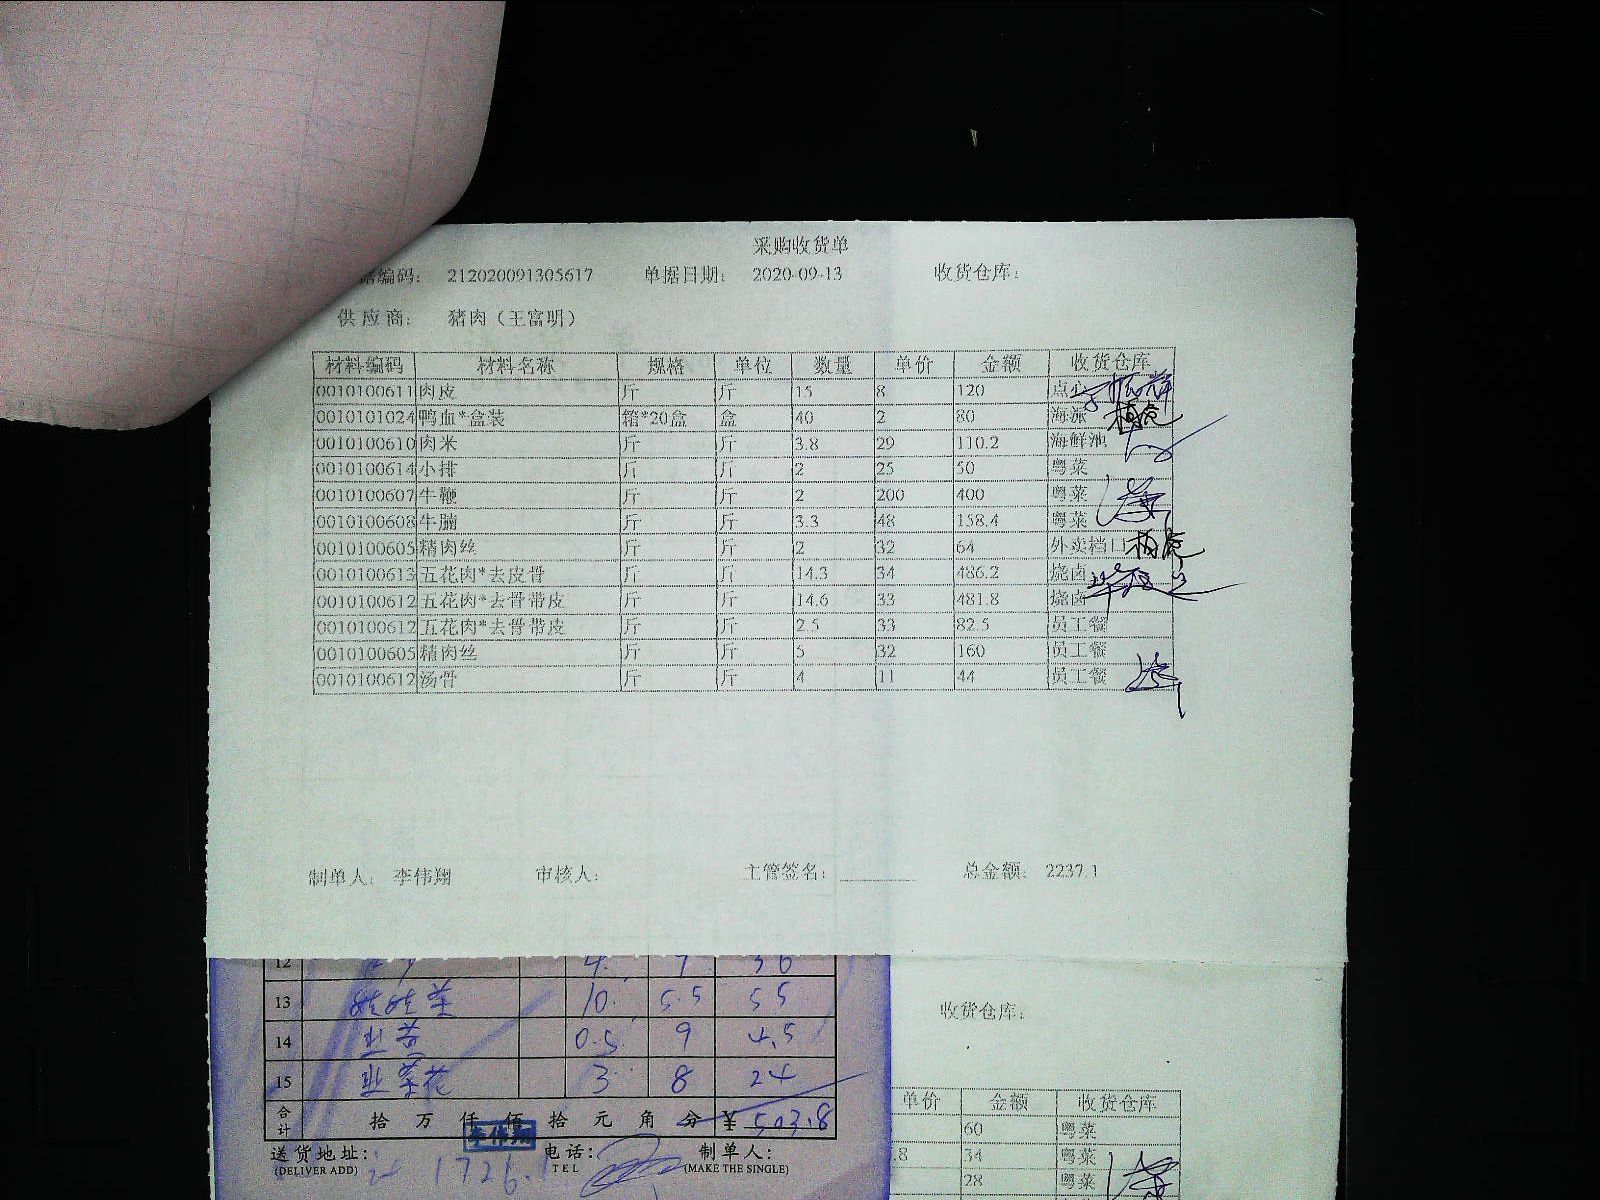 采购收货单
据编码: 212020091305617 单据日期: 2020-09-13 收货仓库:
供应商: 猪肉（王富明）
材料编码 材料名称 规格 单位 数量 单价 金额 收货仓库
0010100611 肉皮 斤 斤 15 8 120 点心
0010101024 鸭血*盒装 箱*20盒 盒 40 2 80 海派
0010100610 肉米 斤 斤 3.8 29 110.2 海鲜池
0010100614 小排 斤 斤 2 25 50 粤菜
0010100607 牛鞭 斤 斤 2 200 400 粤菜
0010100608 牛腩 斤 斤 3.3 48 158.4 粤菜
0010100605 精肉丝 斤 斤 2 32 64 外卖档口
0010100613 五花肉*去皮骨 斤 斤 14.3 34 486.2 烧卤
0010100612 五花肉*去骨带皮 斤 斤 14.6 33 481.8 烧卤
0010100612 五花肉*去骨带皮 斤 斤 2.5 33 82.5 员工餐
0010100605 精肉丝 斤 斤 5 32 160 员工餐
0010100612 汤骨 斤 斤 4 11 44 员工餐
制单人: 李伟翔 审核人: 主管签名: 总金额: 2237.1
12 4 9 36
13 10 5.5 55
14 0.5 9 4.5
15 3 8 24
合计 拾 万 仟 佰 拾 元 角 分 ¥ 503.8
李伟翔
送货地址: 电话: 制单人:
(DELIVER ADD) TEL (MAKE THE SINGLE)
1726.1
收货仓库:
单价 金额 收货仓库
60 粤菜
.8 34 粤菜
28 粤菜